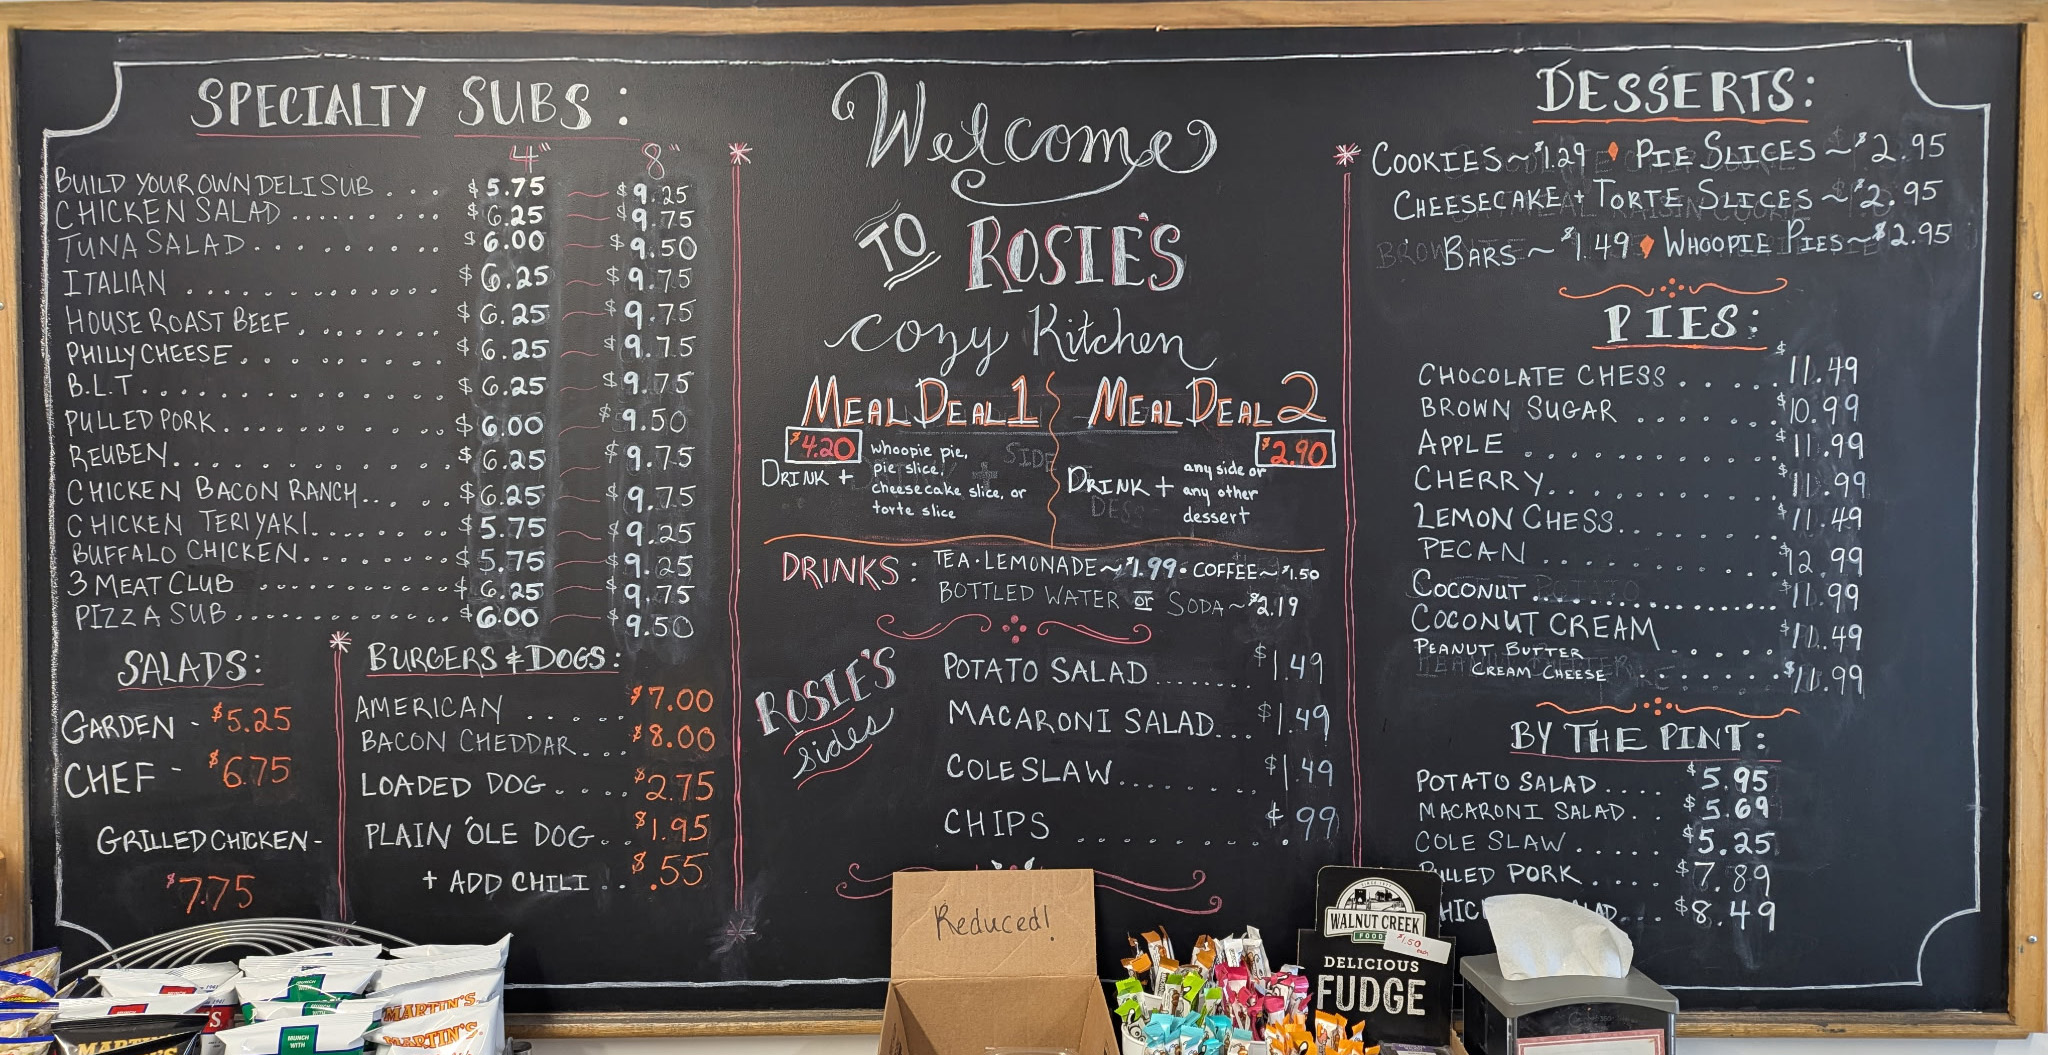 SPECIALTY SUBS:
4" 8"
BUILD YOUR OWN DELI SUB ... $5.75 ~ $9.25
CHICKEN SALAD ........ $6.25 ~ $9.75
TUNA SALAD ........ $6.00 ~ $9.50
ITALIAN ............ $6.25 ~ $9.75
HOUSE ROAST BEEF ........ $6.25 ~ $9.75
PHILLY CHEESE ......... $6.25 ~ $9.75
B.L.T ............. $6.25 ~ $9.75
PULLED PORK .......... $6.00 $9.50
REUBEN ............. $6.25 ~ $9.75
CHICKEN BACON RANCH .. .. $6.25 ~ $9.75
CHICKEN TERIYAKI ........ $5.75 ~ $9.25
BUFFALO CHICKEN ........ $5.75 ~ $9.25
3 MEAT CLUB ............. $6.25 ~ $9.75
PIZZA SUB ............ $6.00 ~ $9.50
SALADS:
GARDEN - $5.25
CHEF - $6.75
GRILLED CHICKEN -
$7.75
BURGERS & DOGS:
AMERICAN ..... $7.00
BACON CHEDDAR ... $8.00
LOADED DOG .... $2.75
PLAIN 'OLE DOG .. $1.95
+ ADD CHILI .. $.55
Welcome
TO ROSIE'S
cozy Kitchen
MEAL DEAL 1
$4.20
DRINK + whoopie pie,
pie slice,
cheesecake slice, or
torte slice
MEAL DEAL 2
$2.90
DRINK + any side or
any other
dessert
DRINKS: TEA · LEMONADE ~ $1.99 · COFFEE ~ $1.50
BOTTLED WATER or SODA ~ $2.19
ROSIE'S
sides
POTATO SALAD ........ $1.49
MACARONI SALAD ... $1.49
COLESLAW ......... $1.49
CHIPS .......... ¢.99
DESSERTS:
COOKIES ~ $1.29 ♦ PIE SLICES ~ $2.95
CHEESECAKE + TORTE SLICES ~ $2.95
BARS ~ $1.49 ♦ WHOOPIE PIES ~ $2.95
PIES:
CHOCOLATE CHESS ..... $11.49
BROWN SUGAR ....... $10.99
APPLE ........... $11.99
CHERRY .......... $11.99
LEMON CHESS ....... $11.49
PECAN .......... $12.99
COCONUT ............... $11.99
COCONUT CREAM $11.49
PEANUT BUTTER .....
CREAM CHEESE ....... $11.99
BY THE PINT:
POTATO SALAD .... $5.95
MACARONI SALAD .. $5.69
COLE SLAW ..... $5.25
PULLED PORK .... $7.89
$8.49
Reduced!
WALNUT CREEK
FOODS
$1.50
DELICIOUS
FUDGE
MARTIN'S
MARTIN'S
MUNCH
WITH